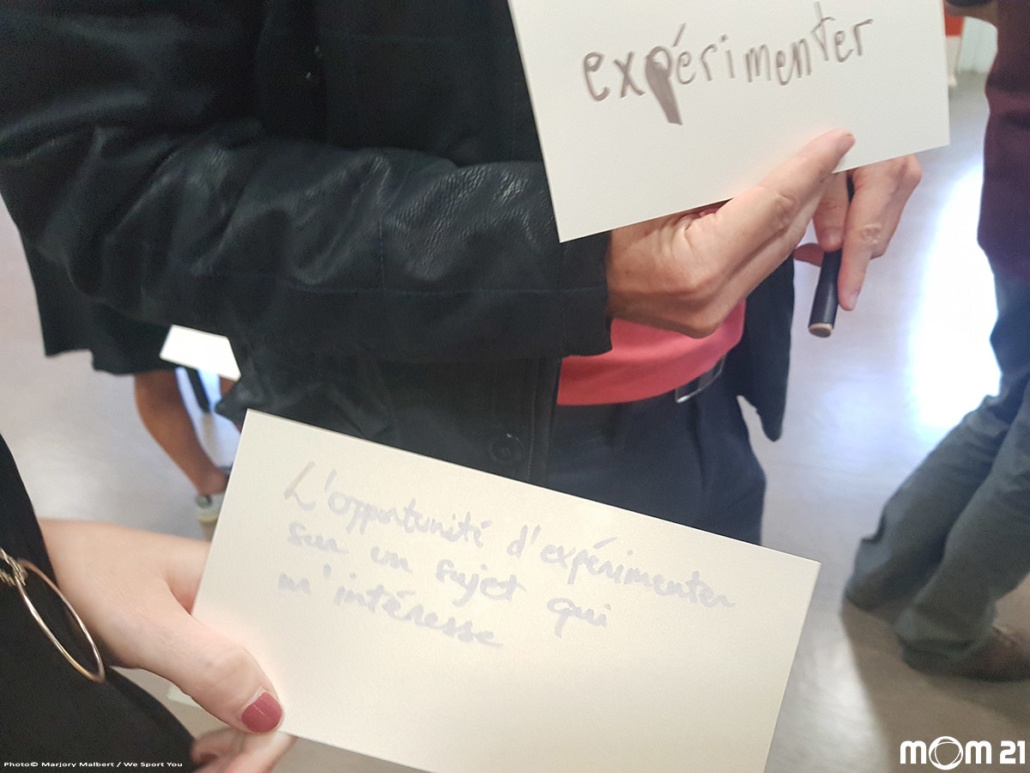 expérimenter
L'opportunité d'expérimenter
sur un sujet qui
m'intéresse
Photo© Marjory Malbert / We Sport You
MOM 21